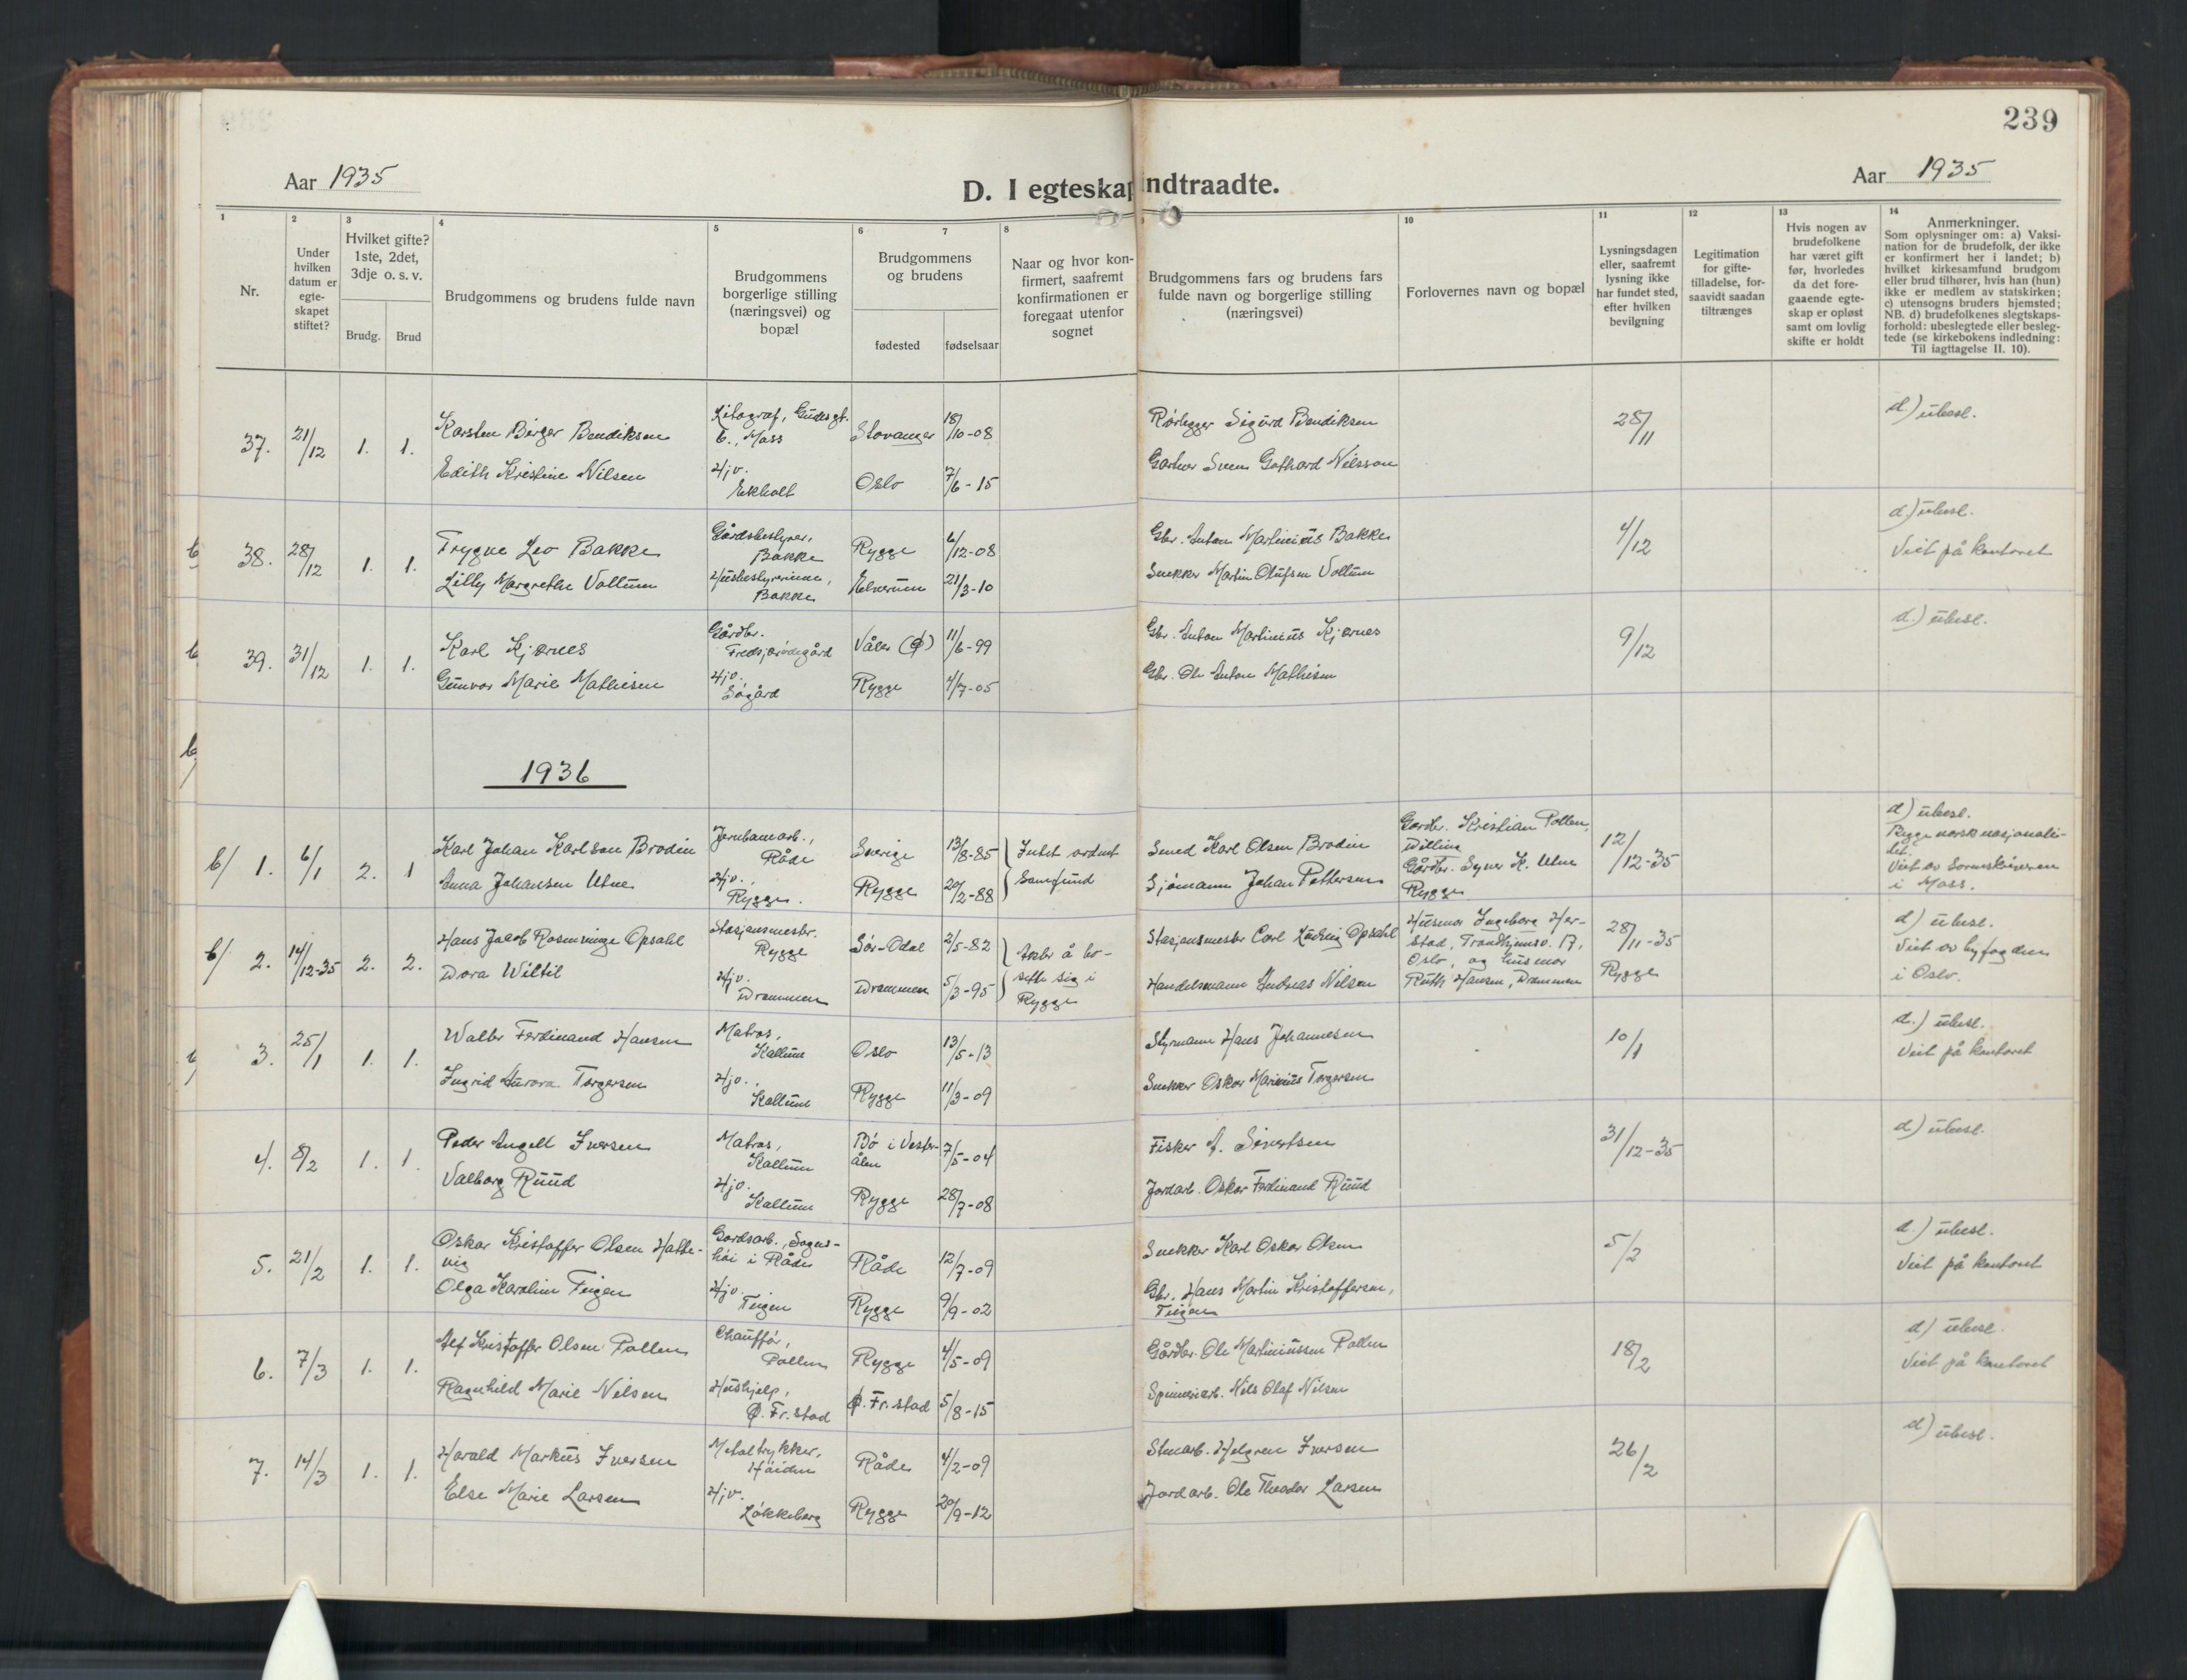 239
Aar 1935
D. I egteskap indtraadte.
Aar 1935
1
Nr.
2
Under
hvilken
datum er
egte-
skapet
stiftet?
3
Hvilket gifte?
1ste, 2det,
3dje o. s. v.
Brudg.
Brud
4
Brudgommens og brudens fulde navn
5
Brudgommens
borgerlige stilling
(næringsvei) og
bopæl
6
7
Brudgommens
og brudens
fødested
fødselsaar
8
Naar og hvor kon-
firmert, saafremt
konfirmationen er
foregaat utenfor
sognet
Brudgommens fars og brudens fars
fulde navn og borgerlige stilling
(næringsvei)
10
Forlovernes navn og bopæl
11
Lysningsdagen
eller, saafremt
lysning ikke
har fundet sted,
efter hvilken
bevilgning
12
Legitimation
for gifte-
tilladelse, for-
saavidt saadan
tiltrænges
13
Hvis nogen av
brudefolkene
har været gift
før, hvorledes
da det fore-
gaaende egte-
skap er opløst
samt om lovlig
skifte er holdt
14
Anmerkninger.
Som oplysninger om: a) Vaksi-
nation for de brudefolk, der ikke
er konfirmert her i landet; b)
hvilket kirkesamfund brudgom
eller brud tilhører, hvis han (hun)
ikke er medlem av statskirken;
c) utensogns bruders hjemsted;
NB. d) brudefolkenes slegtskaps-
forhold: ubeslegtede eller besleg-
tede (se kirkebokens indledning:
Til iagttagelse II. 10).
37. 21/12 1. 1.
Karsten Birger Bendiksen
Litograf, Gudesgt.
6., Moss
Stavanger 18/10-08
Rørlegger Sigurd Bendiksen
28/11
d.) ubesl.
Edith Kristine Nilsen
Hjv.
Ekholt
Oslo 7/6-15
Gartner Sven Gothard Nilsson
38. 28/12 1. 1.
Trygve Leo Bakke
Gårdsbestyrer,
Bakke
Rygge 6/12-08
Gbr. Anton Martinius Bakke
4/12
d.) ubesl.
Viet på kontoret
Lilly Margrethe Vollum
Husbestyrerinne,
Bakke
Elverum 21/3-10
Snekker Martin Olufsen Vollum
39. 31/12 1. 1.
Karl Kjærnes
Gårdbr.
Fredsjørødegård
Våler (Ø) 11/6-99
Gbr. Anton Martinius Kjærnes
9/12
d.) ubesl.
Gunvor Marie Mathisen
Hjv.
Søgård
Rygge 4/7-05
Gbr. Ole Anton Mathisen
1936
b/ 1. 6/1 2. 1
Karl Johan Karlson Brodin
Jernbanearb.,
Råde
Sverige 13/8-85
Intet ordnet
Samfund
Smed Karl Olsen Brodin
Gardbr. Kristian Pollen,
Dilling
Gårdbr. Syver K. Utne
Rygge
12/12-35
d) ubesl.
Begge norsk nasjonali-
tet.
Viet av Sorenskriveren
i Moss.
Anna Johansen Utne
Hjv.,
Rygge.
Rygge 20/2-88
Sjømann Johan Pettersen
b/ 2. 14/12-35 2. 2.
Hans Jacob Rosenvinge Opsahl
Stasjonsmester.
Rygge
Sør-Odal 2/5-82
Akter å bo-
sette sig i
Rygge
Stasjonsmester Carl Ludvig Opsahl
Husmor Ingeborg Her-
stad, Trondhjemsv. 17,
Oslo, og husmor
Ruth Hansen, Drammen
28/11-35
Rygge
d) ubesl.
Viet av byfogden
i Oslo.
Dora Wiltil
Hjv.
Drammen
Drammen 5/3-95
Handelsmann Andreas Nilsen
3. 25/1 1. 1.
Walter Ferdinand Hansen
Matros,
Kallum
Oslo 13/5-13
Styrmann Hans Johannesen
10/1
d.) ubesl.
Viet på kontoret
Ingrid Aurora Torgersen
Hjv.,
Kallum
Rygge 11/3-09
Snekker Oskar Marinius Torgersen
4. 8/2 1. 1.
Peder Angell Iversen
Matros,
Kallum
Bø i Vester-
ålen
7/5-04
Fisker A. Sivertsen
31/12-35
d) ubesl.
Valborg Ruud
Hjv.
Kallum
Rygge 28/7-08
Jordarb. Oskar Ferdinand Ruud
5. 21/2 1. 1.
Oskar Kristoffer Olsen Hatte-
vig
Gardsarb., Sogns-
høi i Råde
Råde 12/7-09
Snekker Karl Oskar Olsen
5/2
d.) ubesl.
Viet på kontoret
Olga Karoline Teigen
Hjv.
Teigen
Rygge 9/9-02
Gbr. Hans Martin Kristoffersen,
Teigen
6. 7/3 1. 1.
Alf Kristoffer Olsen Pollen
Chauffør,
Pollen
Rygge 4/5-09
Gårdbr. Ole Martiniussen Pollen
18/2
d) ubesl.
Viet på kontoret
Ragnhild Marie Nilsen
Hushjelp,
Ø. Fr.stad
Ø. Fr.stad 5/8-15
Spinneriarb. Nils Olaf Nilsen
7. 14/3 1. 1.
Harald Markus Iversen
Metaltrykker,
Høiden
Råde 4/2-09
Stenarb. Helgren Iversen
26/2
d) ubesl.
Else Marie Larsen
Hjv.
Løkkeberg
Rygge 20/9-12
Jordarb. Ole Theodor Larsen